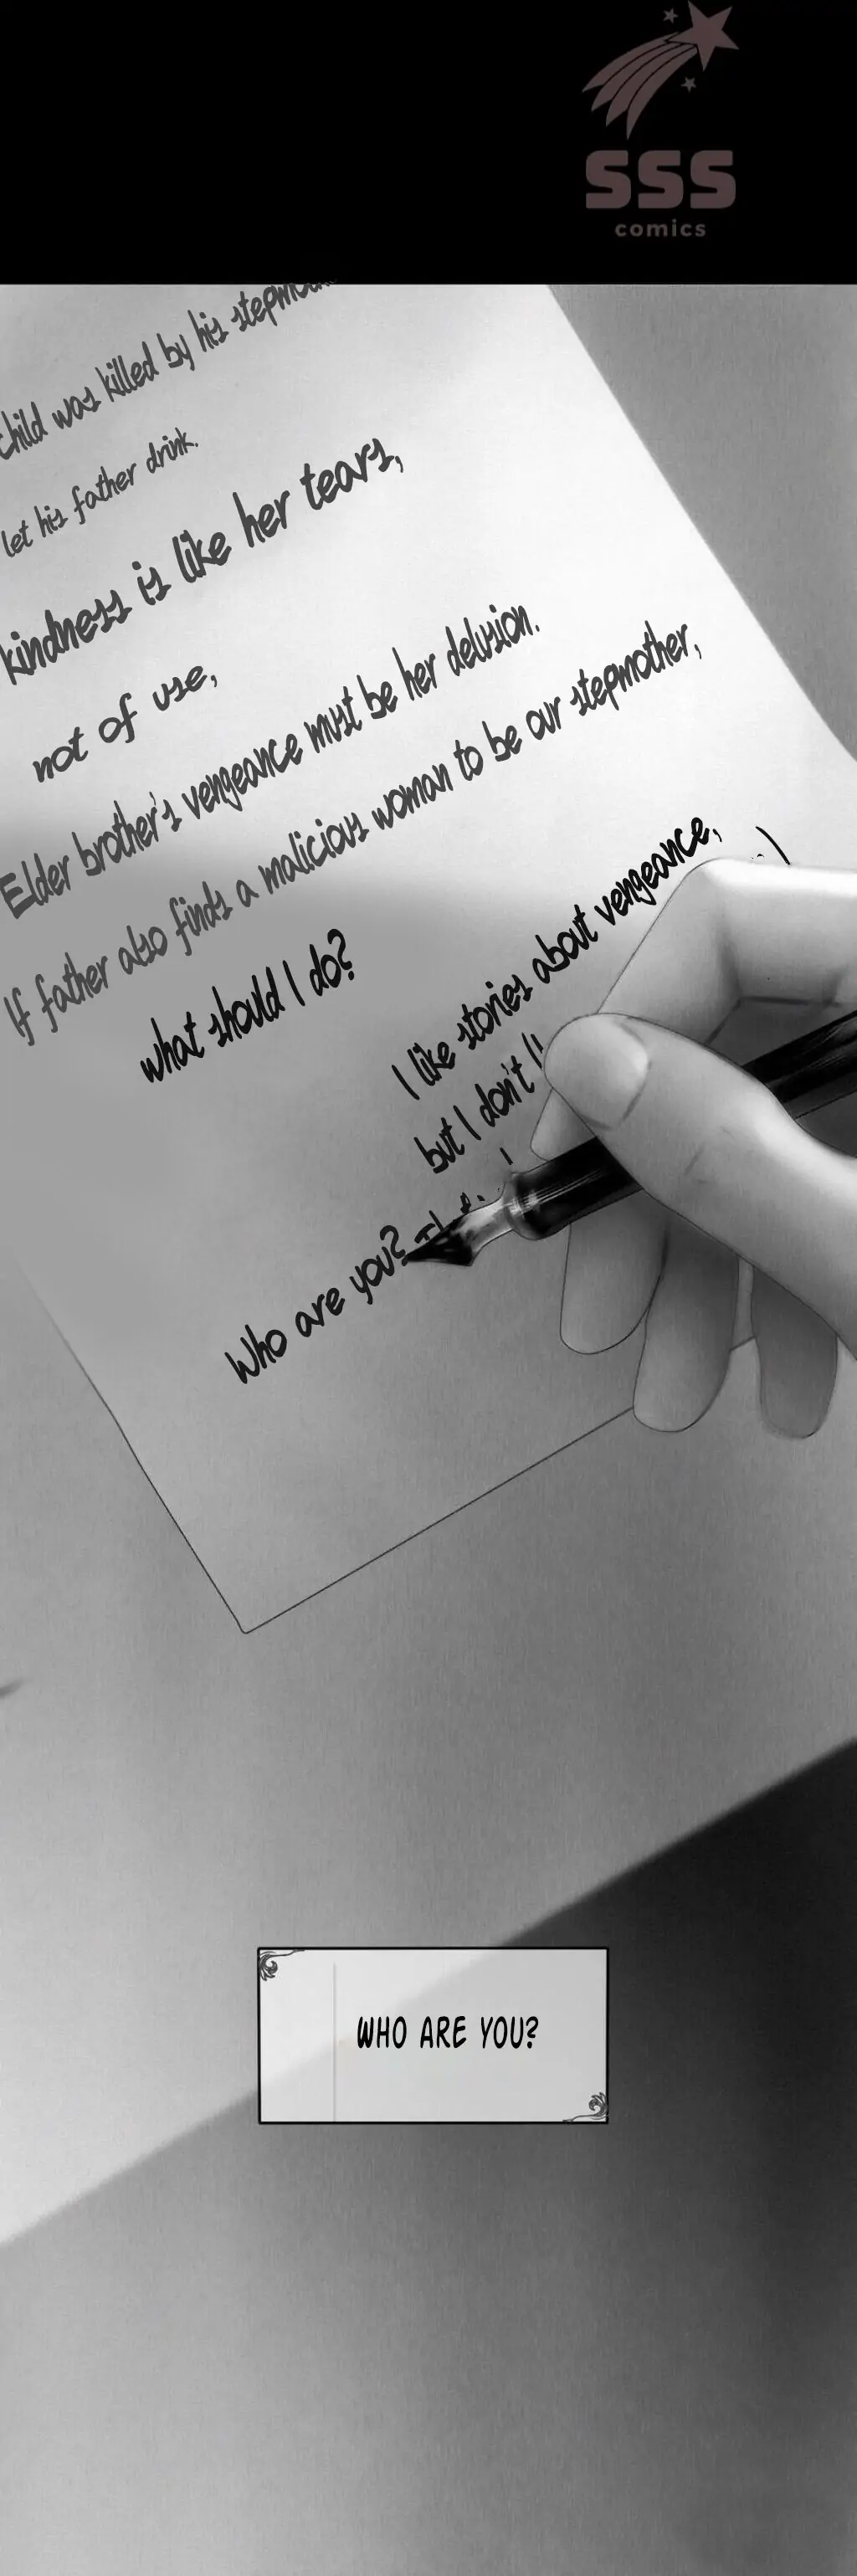 SSS
comics
child was killed by his
let his father drink.
kindness is like her tears,
not of use,
Elder brother's vengeance must be her delusion.
If father also finds a malicious woman to be our stepmother,
what should I do?
I like stories about vengeance,
but I don't
Who are you?
WHO ARE YOU?